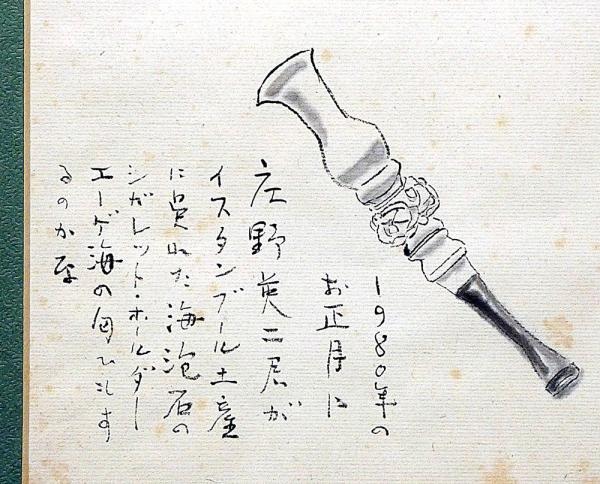 1980年の
お正月に
庄野英二君が
イスタンブール土産
に呉れた海泡石の
シガレット・ホールダー
エーゲ海の匂ひがす
るのか